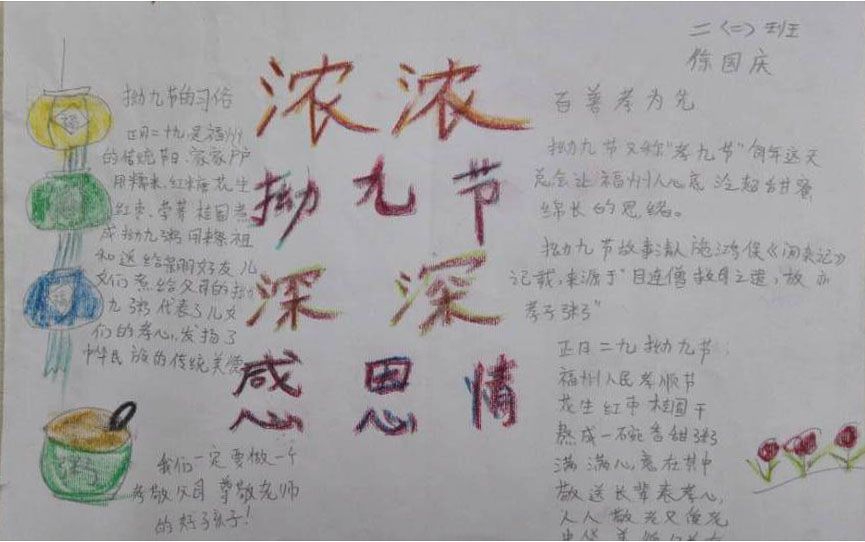 二（二）班
徐国庆
浓浓
拗九节
深深
感恩情
福
福
福
粥
拗九节的习俗
正月二十九是福州
的传统节日、家家户户
用糯米、红糖花生
红枣、荸荠桂圆煮
成拗九粥用来祭祖
和送给亲朋好友儿
女们煮给父母的拗
九粥代表了儿女
们的孝心，发扬了
中华民族的传统美德
我们一定要做一个
孝敬父母尊敬老师
的好孩子！
百善孝为先
拗九节又称"孝九节"每年这天
总会让福州人心底泛起甜蜜
绵长的思绪。
拗九节故事清人施鸿保《闽杂记》
记载，来源于"目连僧救母之遗，故亦
孝子粥"
正月二九拗九节；
福州人民孝顺节
花生红枣桂圆干
熬成一碗香甜粥
满满心意在其中
敬送长辈表孝心，
人人敬老又爱老